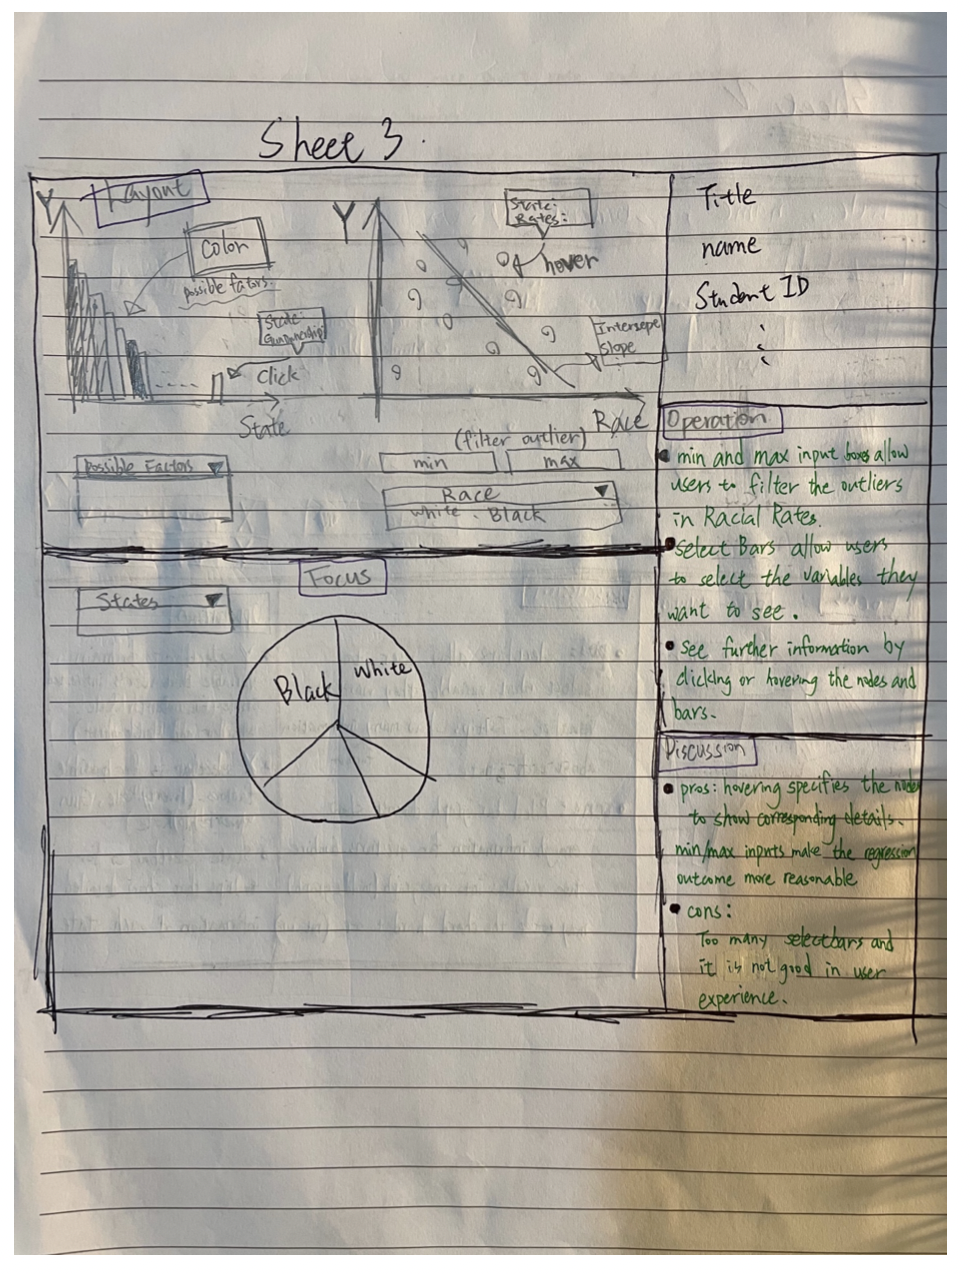 Sheet 3.
Layout
Y
Color
possible fators.
State:
Gunownership
click
State
Y
State:
Rates:
hover
Intersepe
slope
Race
(filter outlier)
min
max
Possible Factors
Race
White . Black
Focus
States
Black
White
Title
name
Student ID
Operation
min and max input boxes allow
users to filter the outliers
in Racial Rates.
select Bars allow users
to select the variables they
want to see.
see further information by
clicking or hovering the nodes and
bars.
Discussion
pros: hovering specifies the node
to show corresponding details.
min/max inputs make the regression
outcome more reasonable
cons:
Too many selectbars and
it is not good in user
experience.